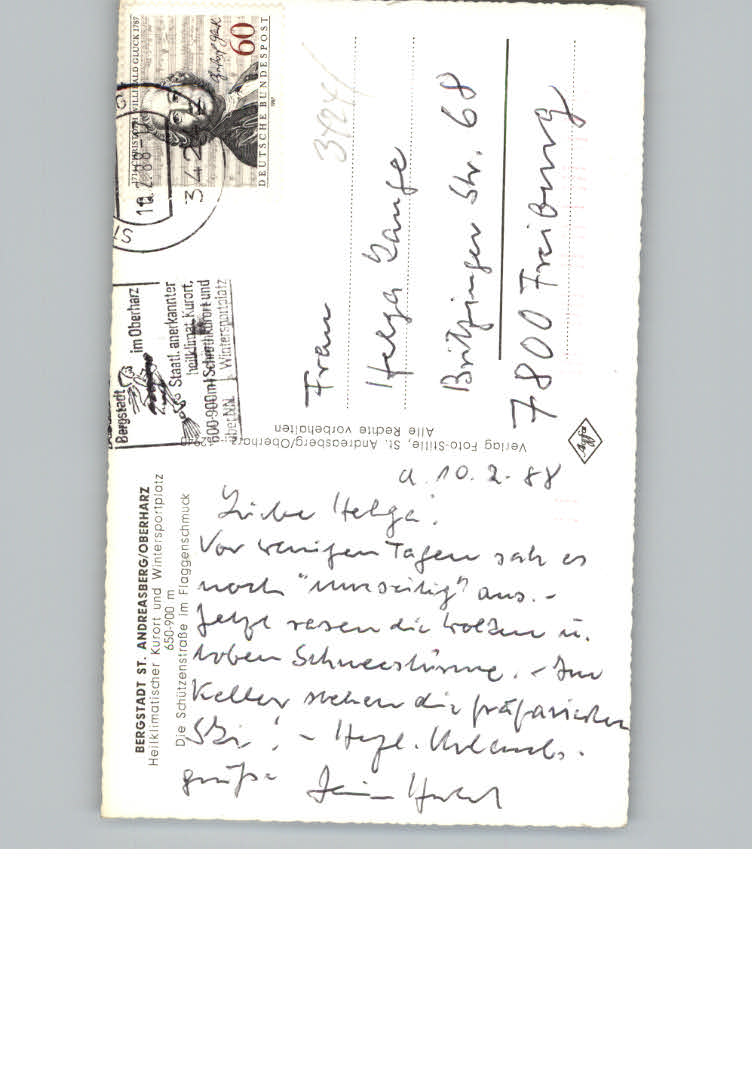 BERGSTADT ST. ANDREASBERG/OBERHARZ
Heilklimatischer Kurort und Wintersportplatz
650-900 m
Die Schützenstraße im Flaggenschmuck
d. 10. 2. 88
Liebe Helga!
Vor wenigen Tagen sah es
noch "unzeitig" aus. -
Jetzt rasen die Wolken u.
toben Schneestürme. - Im
Keller stehen die präparierten
Ski! - Herzl. Urlaubs-
grüße
Verlag Foto-Stille, St. Andreasberg/Oberharz
Alle Rechte vorbehalten
Bergstadt
im Oberharz
Staatl. anerkannter
heilklimat. Kurort,
600-900m Schrothkurort und
über NN Wintersportplatz
1714 CHRISTOPH WILLIBALD GLUCK 1787
60
DEUTSCHE BUNDESPOST
1987
342
3424
Frau
Helga Lange
Britzinger Str. 68
7800 Freiburg
agfa